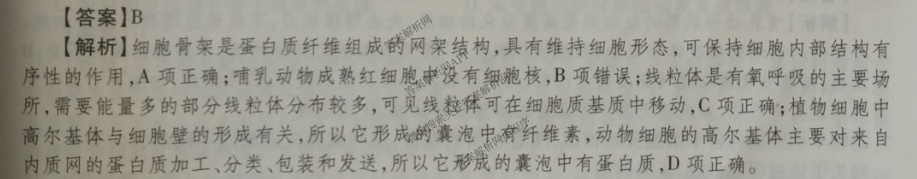 【答案】B
【解析】细胞骨架是蛋白质纤维组成的网架结构,具有维持细胞形态,可保持细胞内部结构有
序性的作用,A 项正确;哺乳动物成熟红细胞中没有细胞核,B 项错误;线粒体是有氧呼吸的主要场
所,需要能量多的部分线粒体分布较多,可见线粒体可在细胞质基质中移动,C 项正确;植物细胞中
高尔基体与细胞壁的形成有关,所以它形成的囊泡中有纤维素,动物细胞的高尔基体主要对来自
内质网的蛋白质加工、分类、包装和发送,所以它形成的囊泡中有蛋白质,D 项正确。